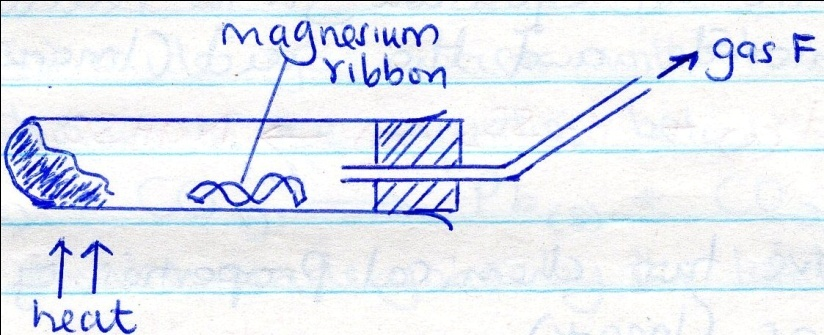 magnesium
ribbon
gas F
heat